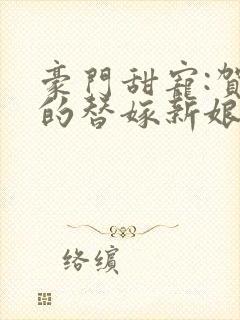 豪門甜寵:賀
的替嫁新娘
絡繽